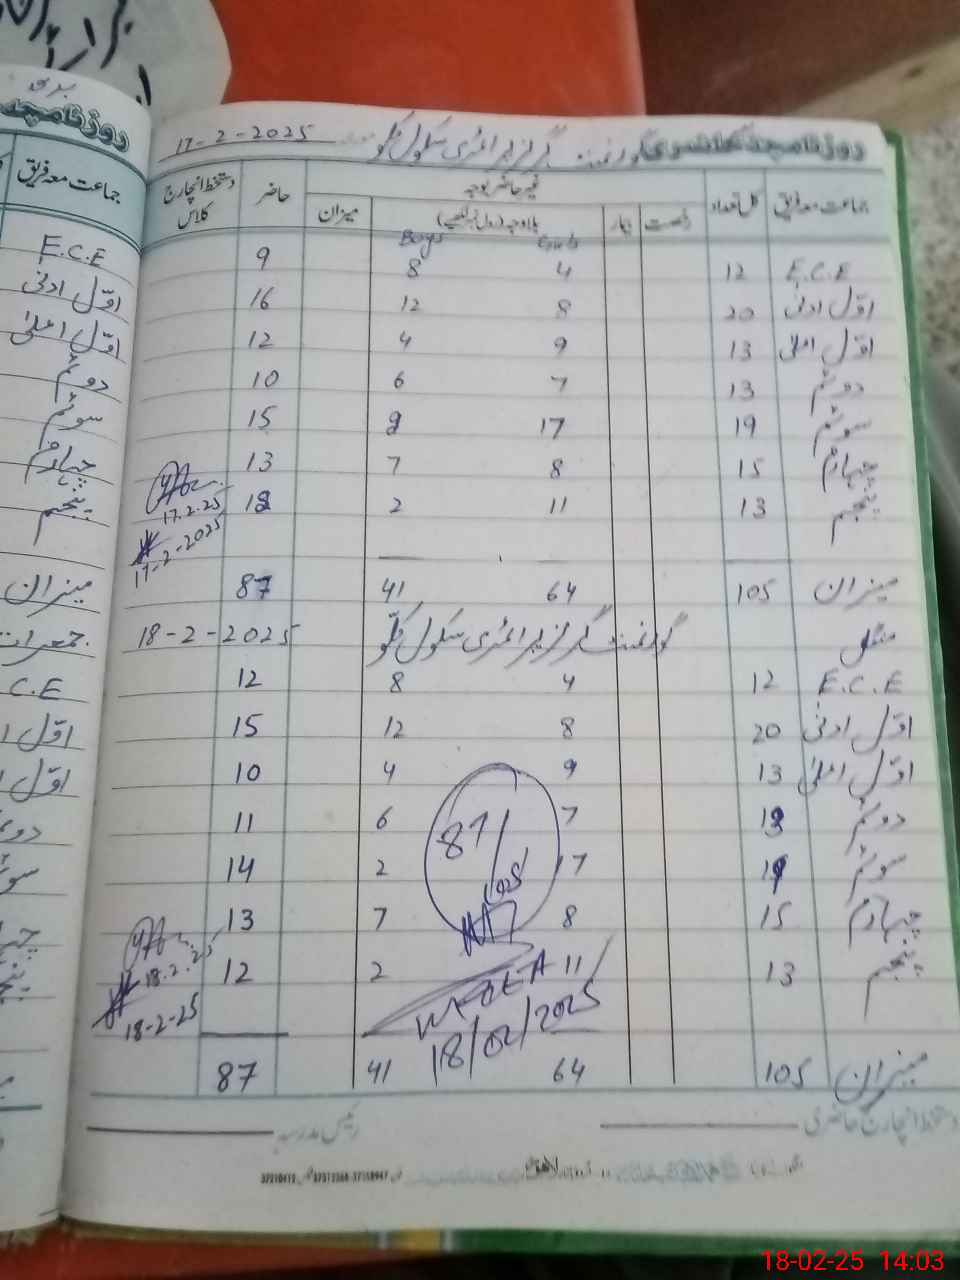 روزنامچہ حاضری گورنمنٹ گرلز پرائمری سکول 17-2-2025
جماعت معہ فریق کل تعداد رخصت بیمار غیر حاضر بوجہ بلاوجہ (رول نمبر لکھیے) میزان حاضر دستخط انچارج کلاس
Girls Boys
E.C.E 12 4 8 9
اوّل ادنیٰ 20 8 12 16
اوّل اعلیٰ 13 9 4 12
دوئم 13 7 6 10
سوئم 19 17 15
چہارم 15 8 7 13
پنجم 13 11 2 12
17.2.25
17-2-2025
میزان 105 64 41 87
منگل گورنمنٹ گرلز پرائمری سکول 18-2-2025
E.C.E 12 4 8 12
اوّل ادنیٰ 20 8 12 15
اوّل اعلیٰ 13 9 4 10
دوئم 13 7 6 11
سوئم 19 17 2 14
چہارم 15 8 7 13
پنجم 13 11 2 12
87/105
18.2.25
18-2-25
MEA
18/02/2025
میزان 105 64 41 87
دستخط انچارج حاضری رئیس مدرسہ
روزنامچہ
جماعت معہ فریق
E.C.E
اوّل ادنیٰ
اوّل اعلیٰ
دوئم
سوئم
چہارم
پنجم
میزان
جمعرات
C.E
اوّل
اوّل
18-02-25 14:03